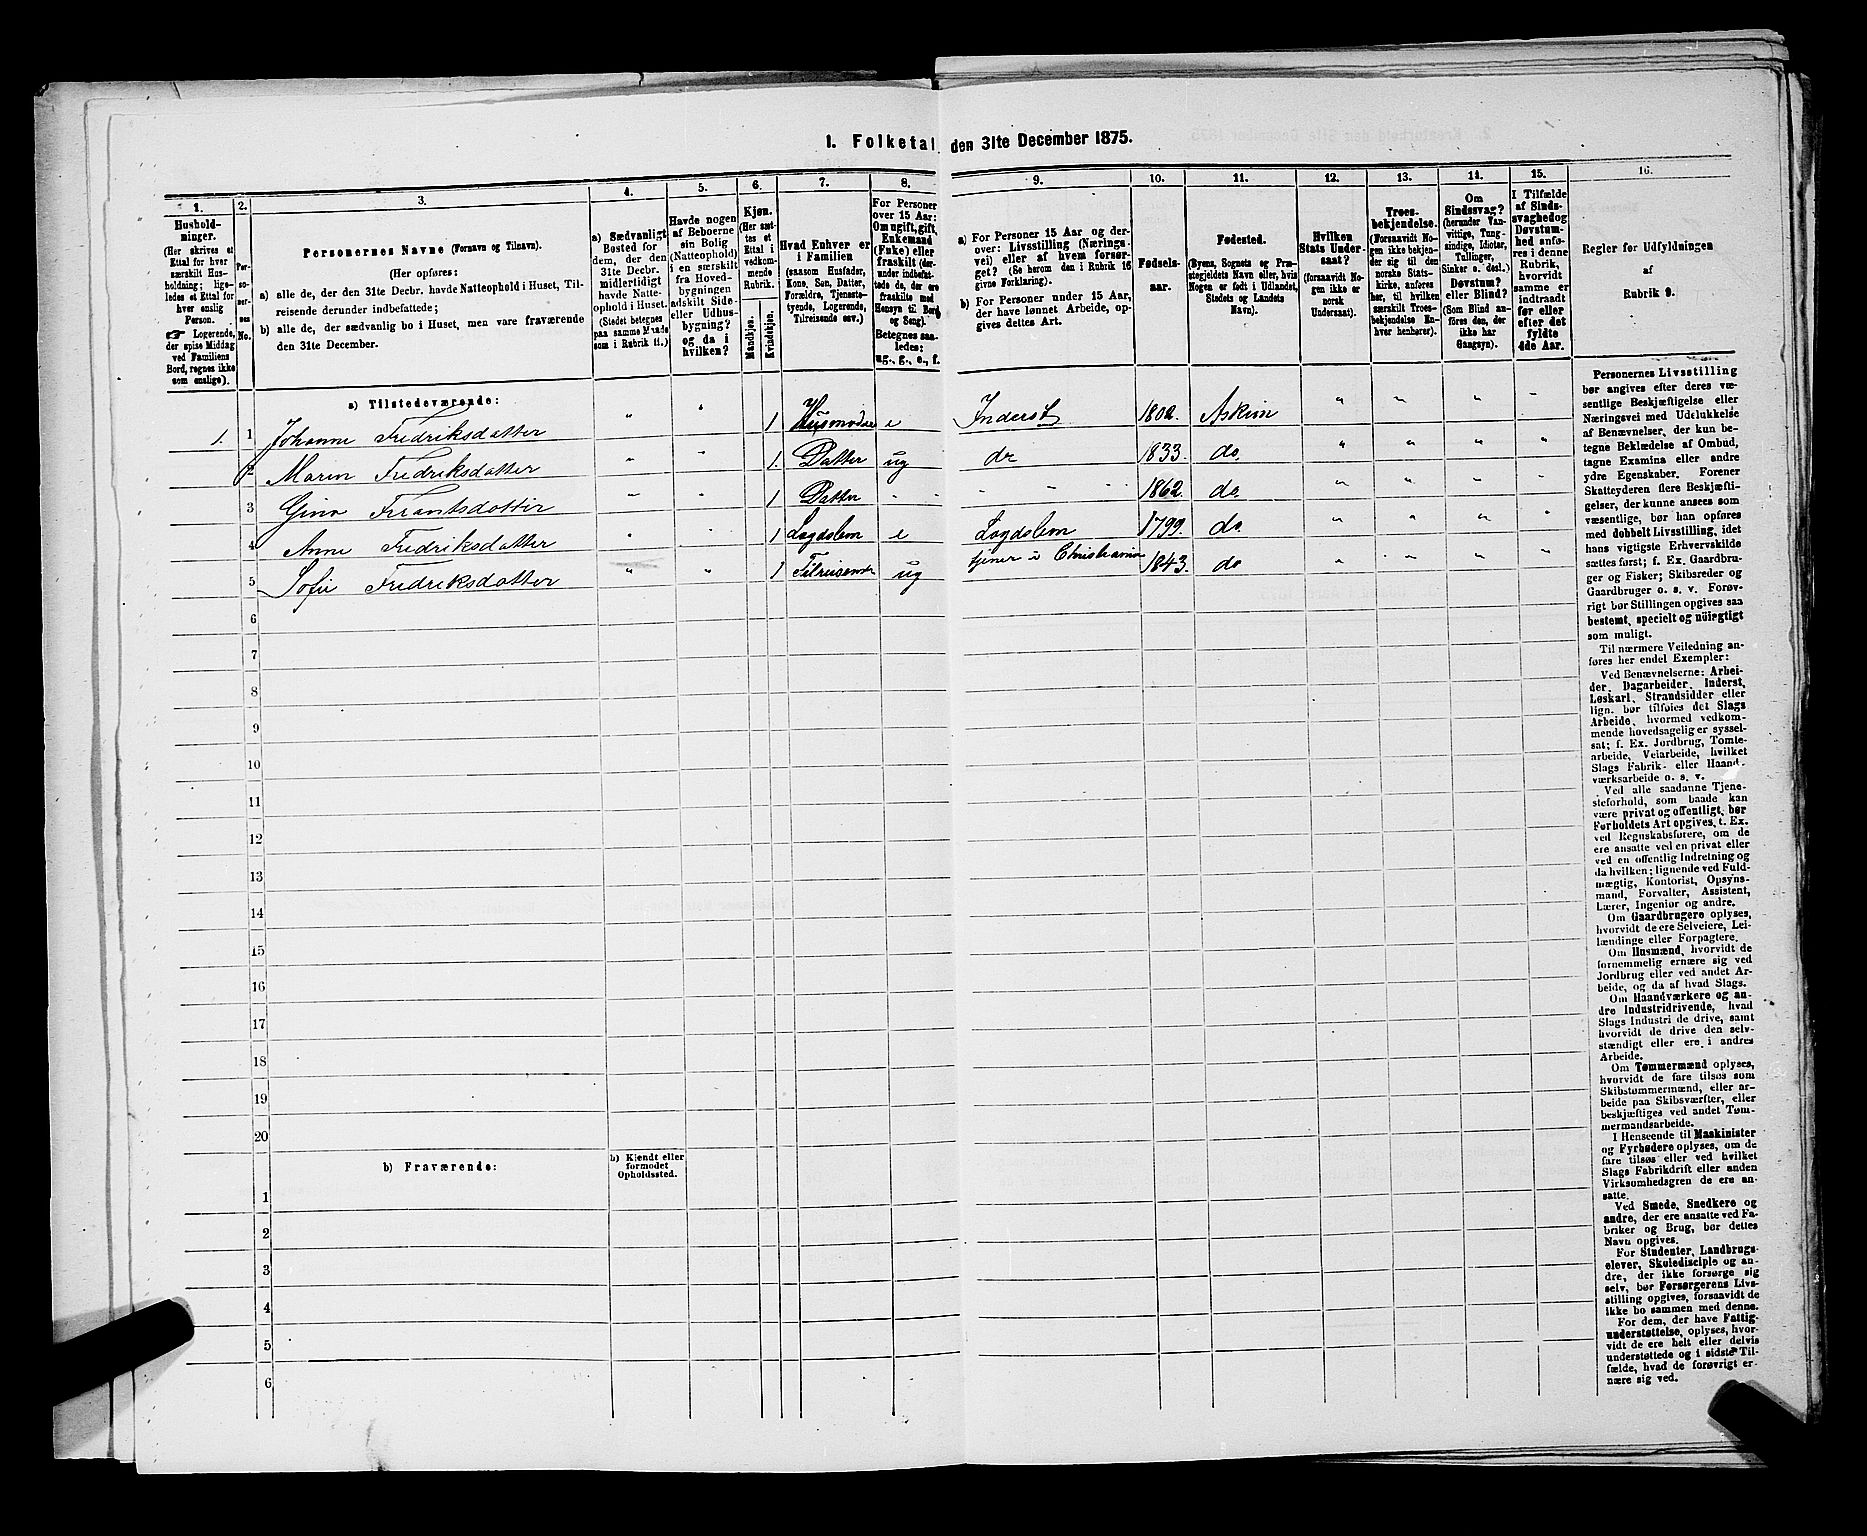 1. Folketal den 31te December 1875.
1.
2.
3.
4.
5.
6.
7.
8.
9.
10.
11.
12.
13.
14.
15.
16.
Hushold-
ninger.
(Her skrives et
Ettal for hver
særskilt Hus-
holdning; lige-
ledes et Ettal for
hver enslig
Person.
Logerende,
der spise Middag
ved Familiens
Bord, regnes ikke
som enslige).
Per-
so-
ner-
nes
No.
Personernes Navne (Fornavn og Tilnavn).
(Her opføres:
a) alle de, der den 31te Decbr. havde Natteophold i Huset, Til-
reisende derunder indbefattede;
b) alle de, der sædvanlig bo i Huset, men vare fraværende
den 31te December.
a) Sædvanligt
Bosted for
dem, der den
31te Decbr.
midlertidigt
havde Natte-
ophold i Huset.
(Stedet betegnes
paa samme Maade
som i Rubrik 11.)
Havde nogen
af Beboerne
sin Bolig
(Natteophold)
i en særskilt
fra Hoved-
bygningen
adskilt Side-
eller Udhus-
bygning?
og da i
hvilken?
Kjøn.
(Her sæt-
tes et
Ettal i
vedkom-
mende
Rubrik.
Mandkjøn.
Kvindekjøn.
Hvad Enhver er
i Familien
(saasom Husfader,
Kone, Søn, Datter,
Forældre, Tjeneste-
tyende, Logerende,
Tilreisende osv.)
For Personer
over 15 Aar:
Om ugift, gift,
Enkemand
(Enke) eller
fraskilt (der-
under indbefat-
tede de, der ere
fraskilte med
Hensyn til Bord
og Seng).
Betegnes saa-
ledes:
ug., g., e., f.
a) For Personer 15 Aar og der-
over: Livsstilling (Nærings-
vei) eller af hvem forsør-
get? (Se herom den i Rubrik 16
givne Forklaring).
b) For Personer under 15 Aar,
der have lønnet Arbeide, op-
gives dettes Art.
Fødsels-
aar.
Fødested.
(Byens, Sognets og Præ-
stegjeldets Navn eller, hvis
Nogen er født i Udlandet,
Stedets og Landets
Navn).
Hvilken
Stats Under-
saat?
(forsaavidt No-
gen ikke er
norsk
Undersaat).
Troes-
bekjendelse.
(Forsaavidt No-
gen ikke bekjen-
der sig til den
norske Stats-
kirke, anføres
her, til hvilken
særskilt Troes-
bekjendelse En-
hver henhører).
Om
Sindssvag?
(herunder Van-
vittige, Tung-
sindige, Idioter,
Tullinger,
Sinker o. desl.)
Døvstum?
eller Blind?
(Som Blind an-
føres den, der
ikke har
Gangsyn).
I Tilfælde
af Sinds-
svaghed og
Døvstum-
hed anfø-
res i denne
Rubrik,
hvorvidt
samme er
indtraadt
før eller
efter det
fyldte
4de Aar.
Regler for Udfyldningen
af
Rubrik 9.
a) Tilstedeværende:
1. 1 Johanne Fredriksdatter " " 1 Husmoder e Inderst 1802. Askim " " " "
2 Maren Fredriksdatter " " 1. Datter ug do 1833. do. " " " "
3 Gina Frantsdatter " " 1 Datter " " " " " 1862. do. " " " "
4 Anne Fredriksdatter " " 1 Lægdslem e Lægdslem 1799. do. " " " "
5 Sofie Fredriksdatter " " 1 Tilreisende ug tjener i Christiania 1843. do " " " "
6
7
8
9
10
11
12
13
14
15
16
17
18
19
20
b) Fraværende:
b) Kjendt eller
formodet
Opholdssted.
1
2
3
4
5
6
Personernes Livsstilling
bør angives efter deres væ-
sentlige Beskjæftigelse eller
Næringsvei med Udelukkelse
af Benævnelser, der kun be-
tegne Beklædelse af Ombud,
tagne Examina eller andre
ydre Egenskaber. Forener
Skatteyderen flere Beskjæfti-
gelser, der kunne ansees som
væsentlige, bør han opføres
med dobbelt Livsstilling, idet
hans vigtigste Erhvervskilde
sættes først; f. Ex. Gaardbru-
ger og Fisker; Skibsreder og
Gaardbruger o. s. v. Forøv-
rigt bør Stillingen opgives saa
bestemt, specielt og nøiagtigt
som muligt.
Til nærmere Veiledning an-
føres her endel Exempler:
Ved Benævnelserne: Arbei-
der, Dagarbeider, Inderst,
Løskarl, Strandsidder eller
lign. bør tilføies det Slags
Arbeide, hvormed vedkom-
mende hovedsagelig er syssel-
sat; f. Ex. Jordbrug, Tomte-
arbeide, Veiarbeide, hvilket
Slags Fabrik- eller Haand-
værksarbeide o. s. v.
Ved alle saadanne Tjene-
steforhold, som baade kan
være privat og offentligt, bør
Forholdets Art opgives, t. Ex.
ved Regnskabsførere, om de
ere ansatte ved en privat eller
ved en offentlig Indretning og
da hvilken; lignende ved Fuld-
mægtig, Kontorist, Opsyns-
mand, Forvalter, Assistent,
Lærer, Ingeniør og andre.
Om Gaardbrugere oplyses,
hvorvidt de ere Selveiere, Lei-
lændinge eller Forpagtere.
Om Husmænd, hvorvidt de
fornemmelig ernære sig ved
Jordbrug eller ved andet Ar-
beide, og da af hvad Slags.
Om Haandværkere og an-
dre Industridrivende, hvad
Slags Industri de drive, samt
hvorvidt de drive den selv-
stændigt eller ere i andres
Arbeide.
Om Tømmermænd oplyses,
hvorvidt de fare tilsøs som
Skibstømmermænd, eller ar-
beide paa Skibsværfter, eller
beskjæftiges ved andet Tøm-
mermandsarbeide.
I Henseende til Maskinister
og Fyrbødere oplyses, om de
fare tilsøs eller ved hvilket
Slags Fabrikdrift eller anden
Virksomhedsgren de ere an-
satte.
Ved Smede, Snedkere og
andre, der ere ansatte ved Fa-
briker og Brug, bør dettes
Navn opgives.
For Studenter, Landbrugs-
elever, Skoledisciple og an-
dre, der ikke forsørge sig
selv, bør Forsørgerens Livs-
stilling opgives, forsaavidt de
ikke bo sammen med denne.
For dem, der have Fattig-
understøttelse, oplyses, hvor-
vidt de ere helt eller delvis
understøttede og i sidste Til-
fælde, hvad de forøvrigt er-
nære sig ved.